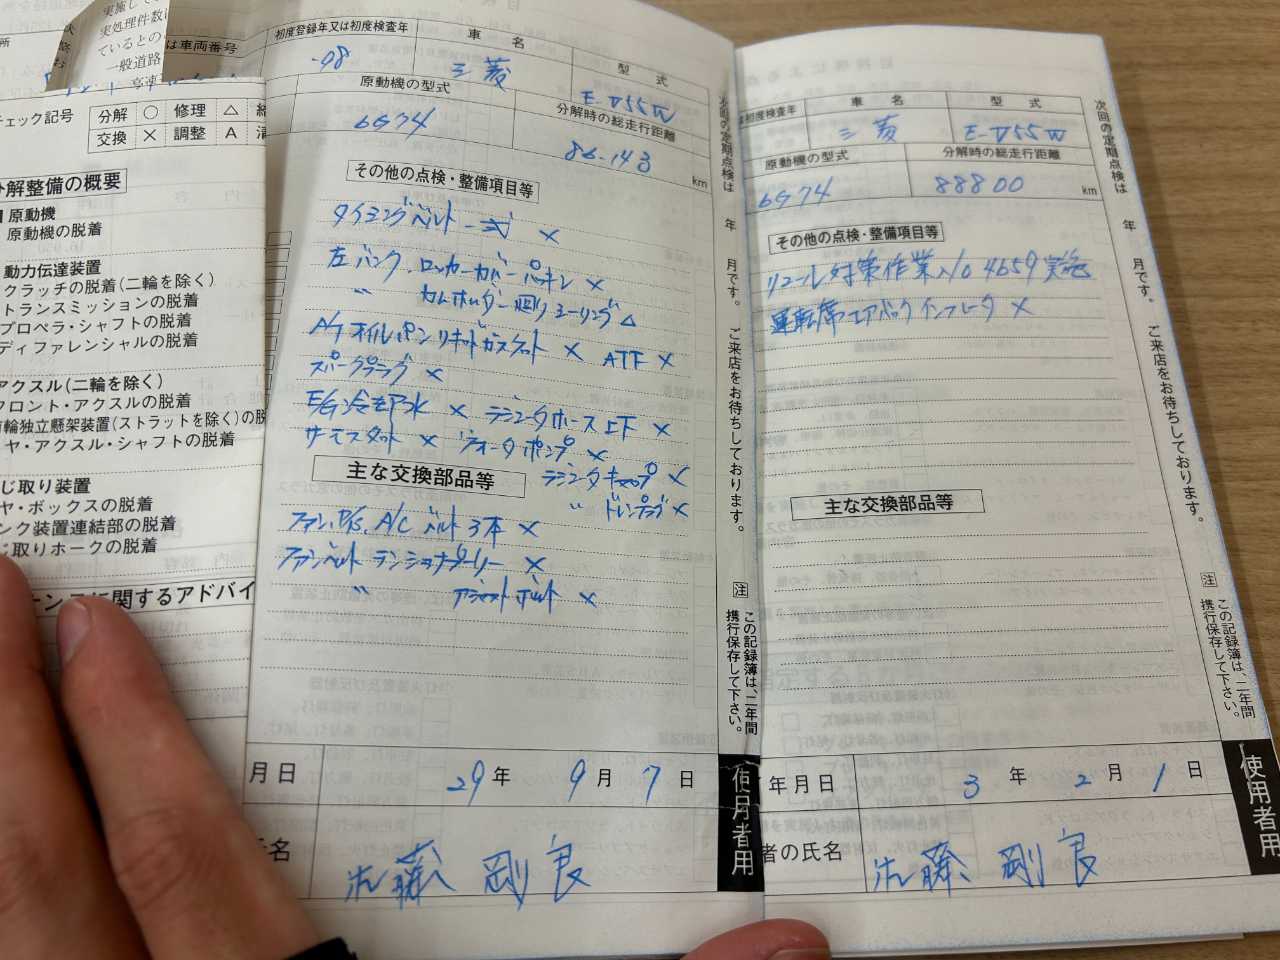 実施して
実処理件数
ているとの
一般道路
は車両番号
チェック記号
分解 ○ 修理 △
交換 × 調整 A
分解整備の概要
原動機
原動機の脱着
動力伝達装置
クラッチの脱着(二輪を除く)
トランスミッションの脱着
プロペラ・シャフトの脱着
ディファレンシャルの脱着
アクスル(二輪を除く)
フロント・アクスルの脱着
前輪独立懸架装置(ストラットを除く)の脱
ヤ・アクスル・シャフトの脱着
じ取り装置
ヤ・ボックスの脱着
ンク装置連結部の脱着
じ取りホークの脱着
に関するアドバイ
初度登録年又は初度検査年
車 名
型 式
-08
三菱
E-V55W
原動機の型式
分解時の総走行距離
6G74
86.143 km
その他の点検・整備項目等
タイミングベルト 一式 ×
左バンク、ロッカーカバーパッキン ×
〃 カムホルダー廻りシーリング △
A/T オイルパン リキッドガスケット × ATF ×
スパークプラグ ×
E/G冷却水 × ラジエータホース上下 ×
サーモスタット × ウォータポンプ ×
主な交換部品等
ラジエータキャップ ×
〃 ドレンプラグ ×
ファン、P/S、A/C ベルト 3本 ×
ファンベルト テンショナプーリー ×
〃 アジャストボルト ×
月日 29年 9月 7日
氏名
佐藤 剛良
次回の定期点検は
年
月です。
ご来店をお待ちしております。
注 この記録簿は、二年間
携行保存して下さい。
使用者用
初度検査年
車 名
型 式
三菱
E-V55W
原動機の型式
分解時の総走行距離
6G74
88800 km
その他の点検・整備項目等
リコール対策作業 No 4659 実施
運転席エアバックインフレータ ×
主な交換部品等
年月日 3年 2月 1日
者の氏名
佐藤 剛良
次回の定期点検は
年
月です。
ご来店をお待ちしております。
注 この記録簿は、二年間
携行保存して下さい。
使用者用